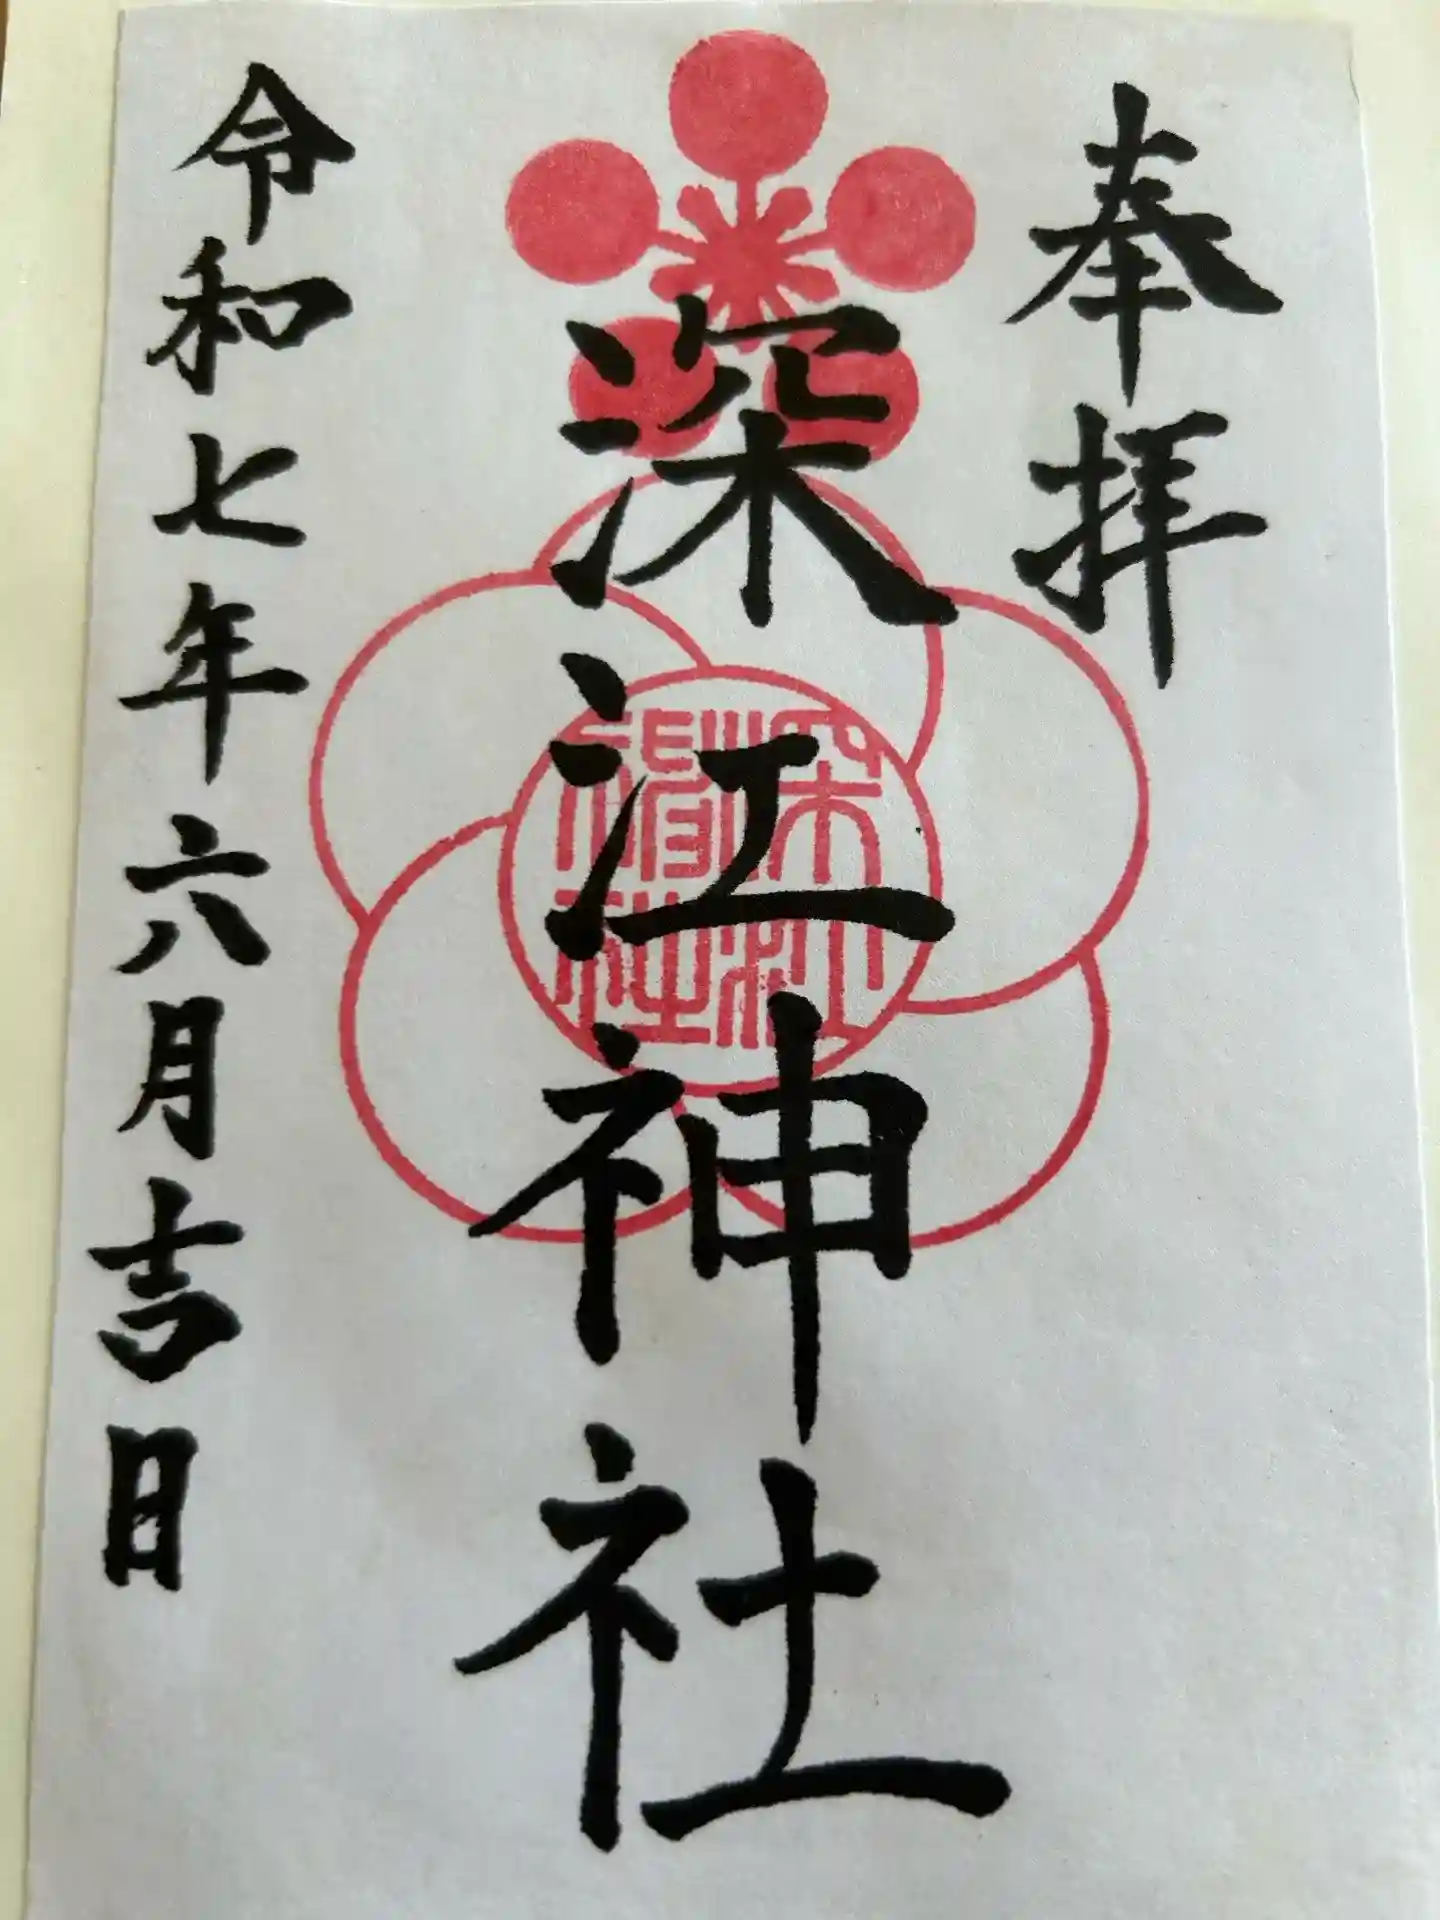 奉拝
深江神社
深江
神社
令和七年六月吉日